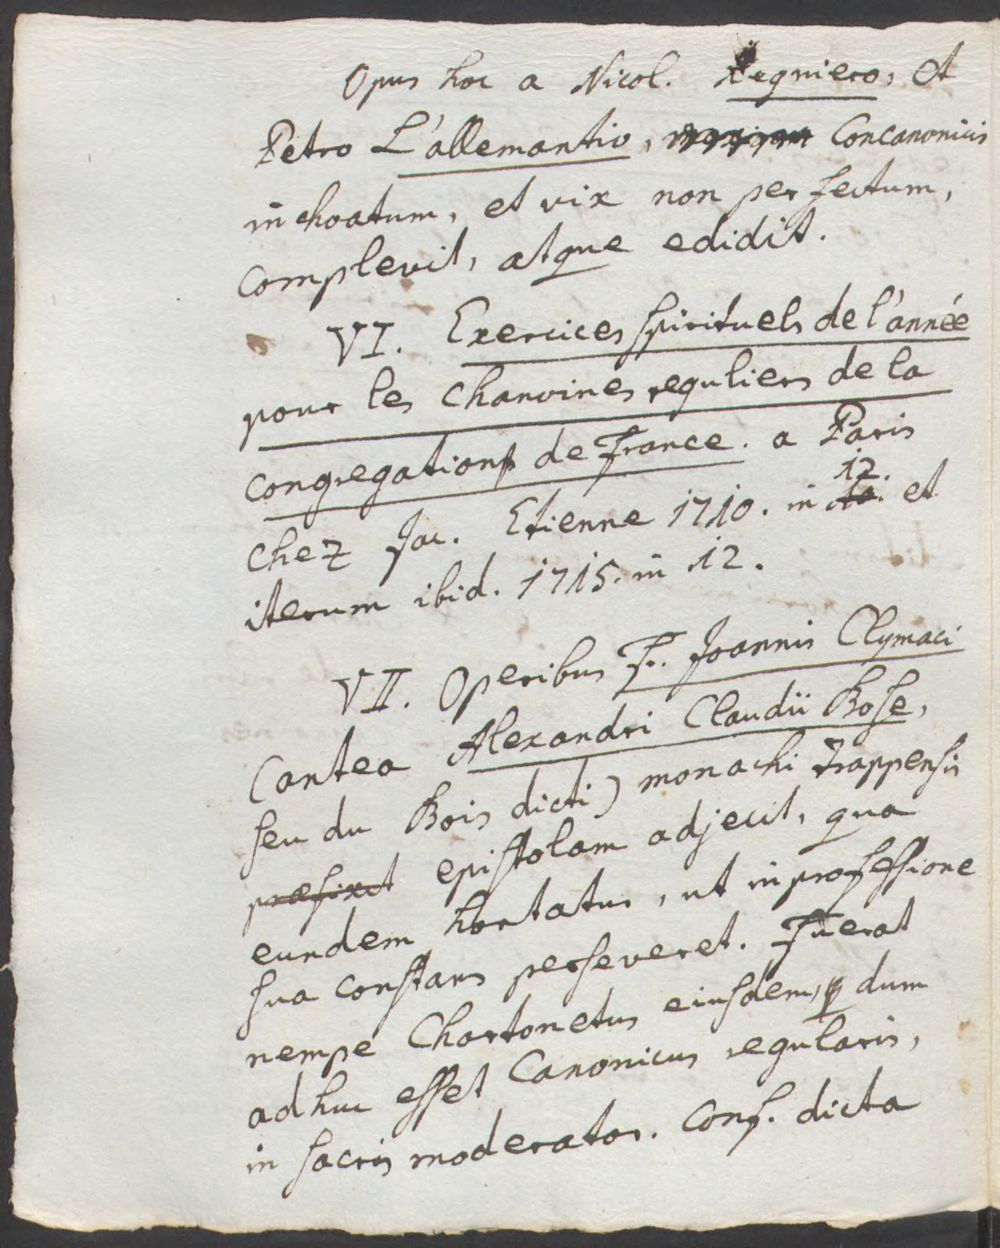 Opus hoc a Nicol. Regniero, et
Petro L'allemantio, Concanonicis
inchoatum, et vix non perfectum,
complevit, atque edidit.
VI. Exercices spirituels de l'année
pour les chanoines reguliers de la
congregation de France. a Paris
chez Jac. Etienne 1710. in 12. et
iterum ibid. 1715. in 12.
VII. Operibus F. Joannis Clymaci
(antea Alexandri Claudii Bose,
seu du Bois dicti) monachi Trappensis
praefixit epistolam adjecit, qua
eundem hortatur, ut in professione
sua constans perseveret. Fuerat
nempe Chartonetus eiusdem, dum
adhuc esset Canonicus regularis,
in sacris moderator. Conf. dicta